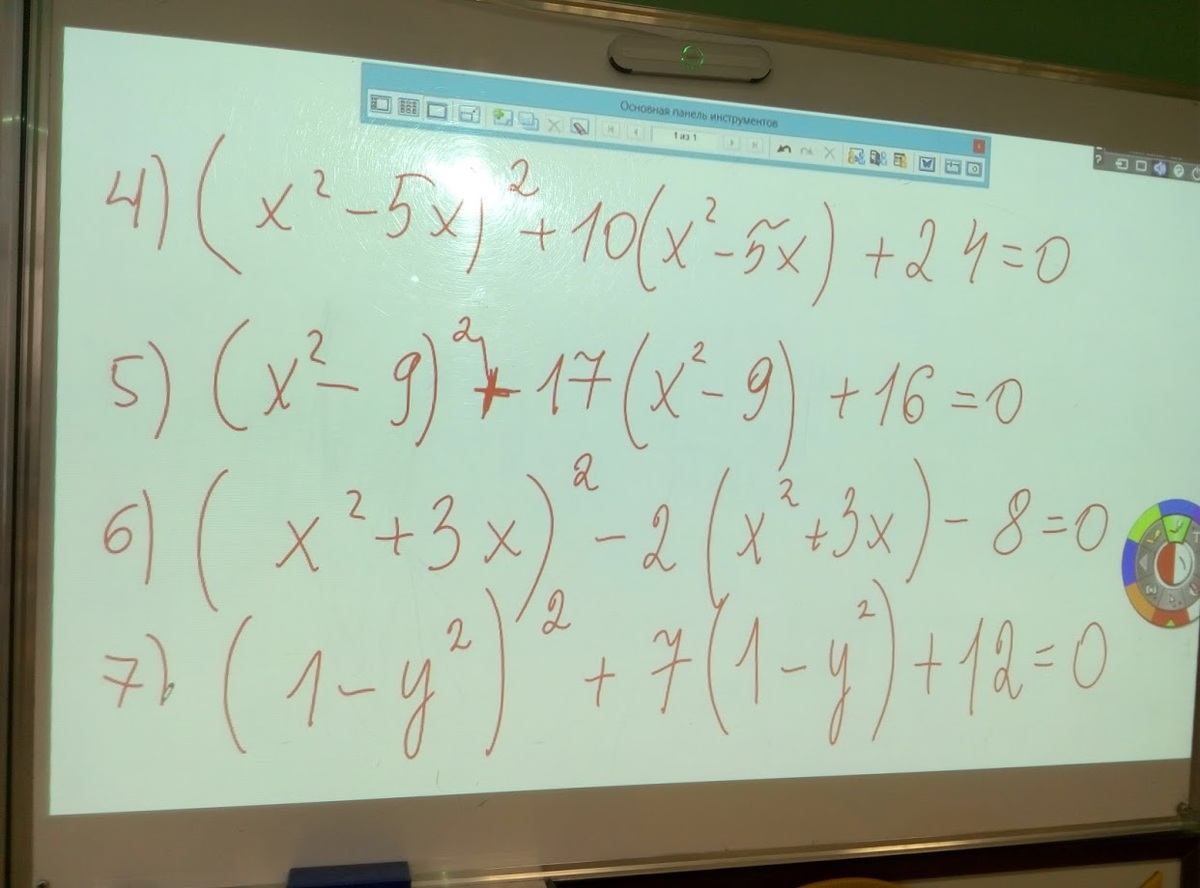 Основная панель инструментов
1 из 1
?
4) (x² - 5x)² + 10(x² - 5x) + 24 = 0
5) (x² - 9)² + 17(x² - 9) + 16 = 0
6) (x² + 3x)² - 2(x² + 3x) - 8 = 0
7) (1 - y²)² + 7(1 - y²) + 12 = 0